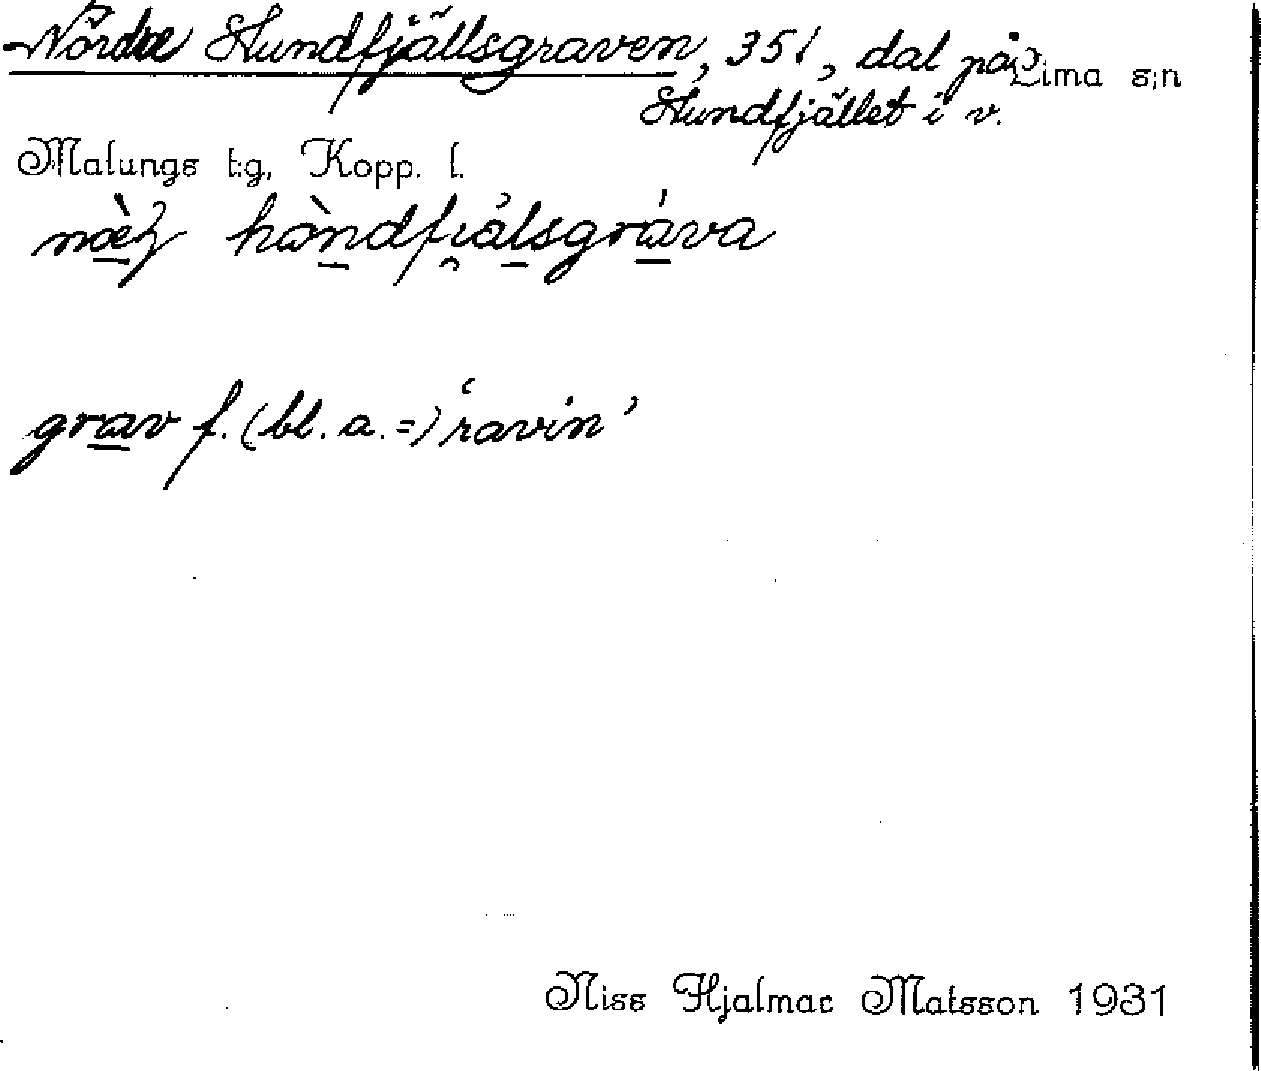 Nördre Hundfjällsgraven, 351, dal på Lima s:n
Hundfjället i v.
Malungs t:g, Kopp. l.
hàndfi̯álsgráva
grav f. (bl. a. =) ‘ravin’
Niss Hjalmar Matsson 1931